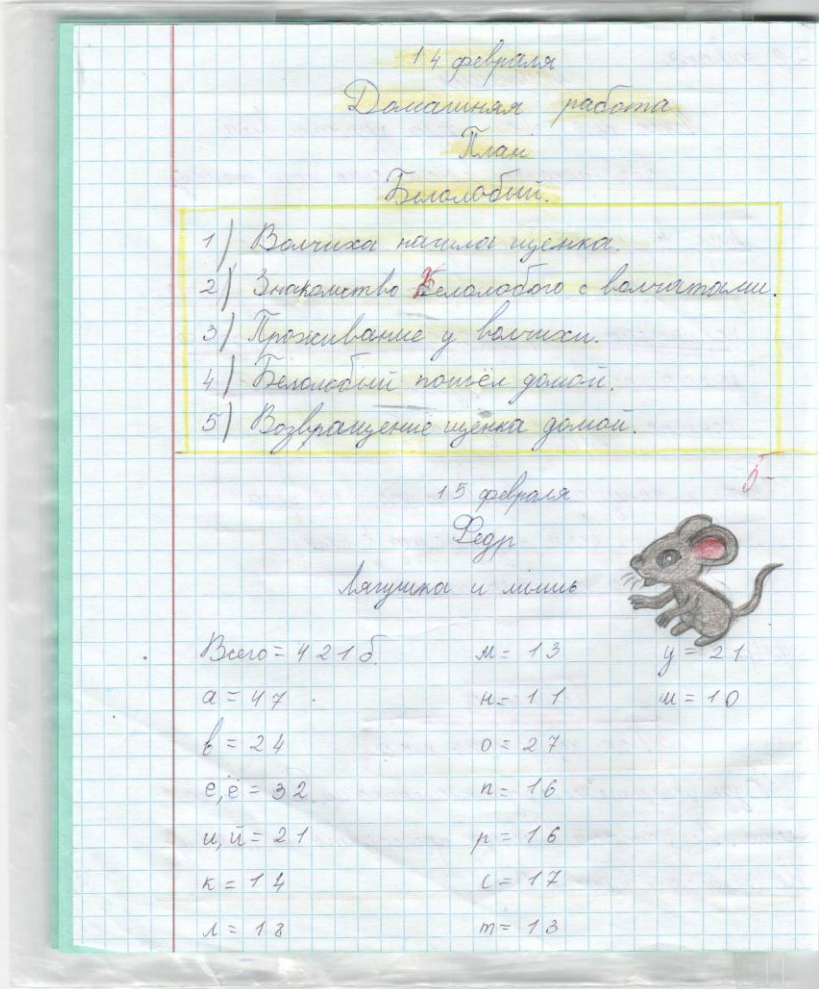 14 февраля
Домашняя работа
План
Белолобый.
1) Волчиха нашла щенка.
2) Знакомство Белолобого с волчатами.
3) Проживание у волчихи.
4) Белолобый пошёл домой.
5) Возвращение щенка домой.
5-
15 февраля
Федр
Лягушка и мышь
Всего = 421 б. м = 13 у = 21
а = 47 н = 11 ш = 10
в = 24 о = 27
е,ё = 32 п = 16
и,й = 21 р = 16
к = 14 с = 17
л = 18 т = 13